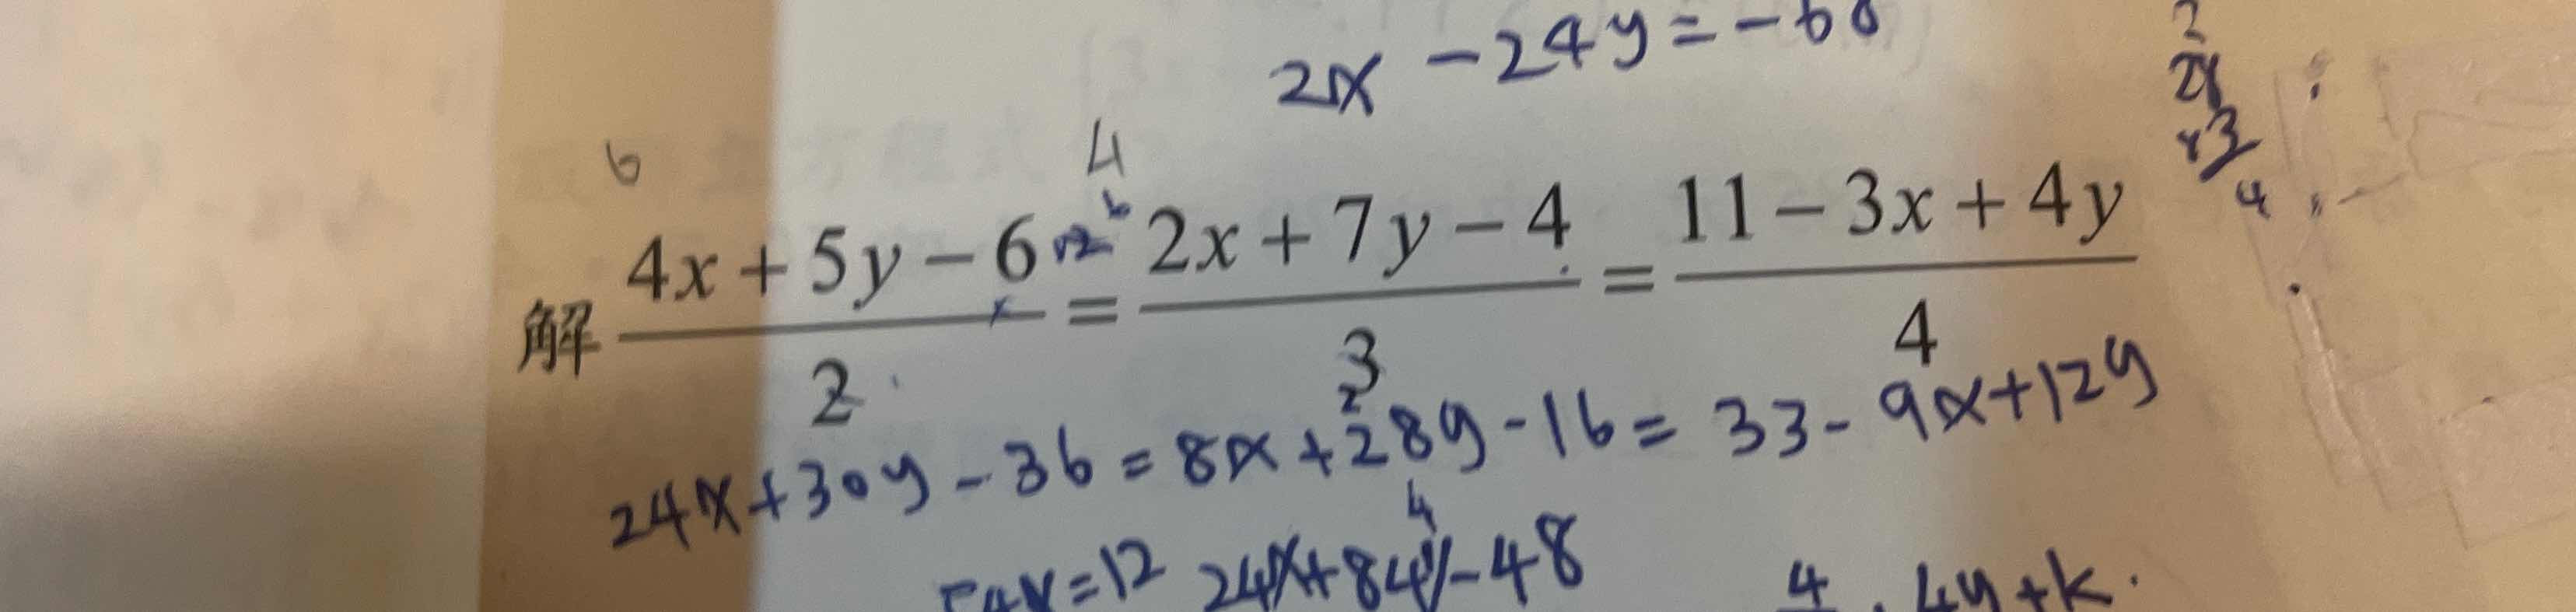 2x - 24y = -60
6
4
解 (4x + 5y - 6)/2 = (2x + 7y - 4)/3 = (11 - 3x + 4y)/4
24x + 30y - 36 = 8x + 28y - 16 = 33 - 9x + 12y
= 12 24x + 84y - 48
4 4y + k.